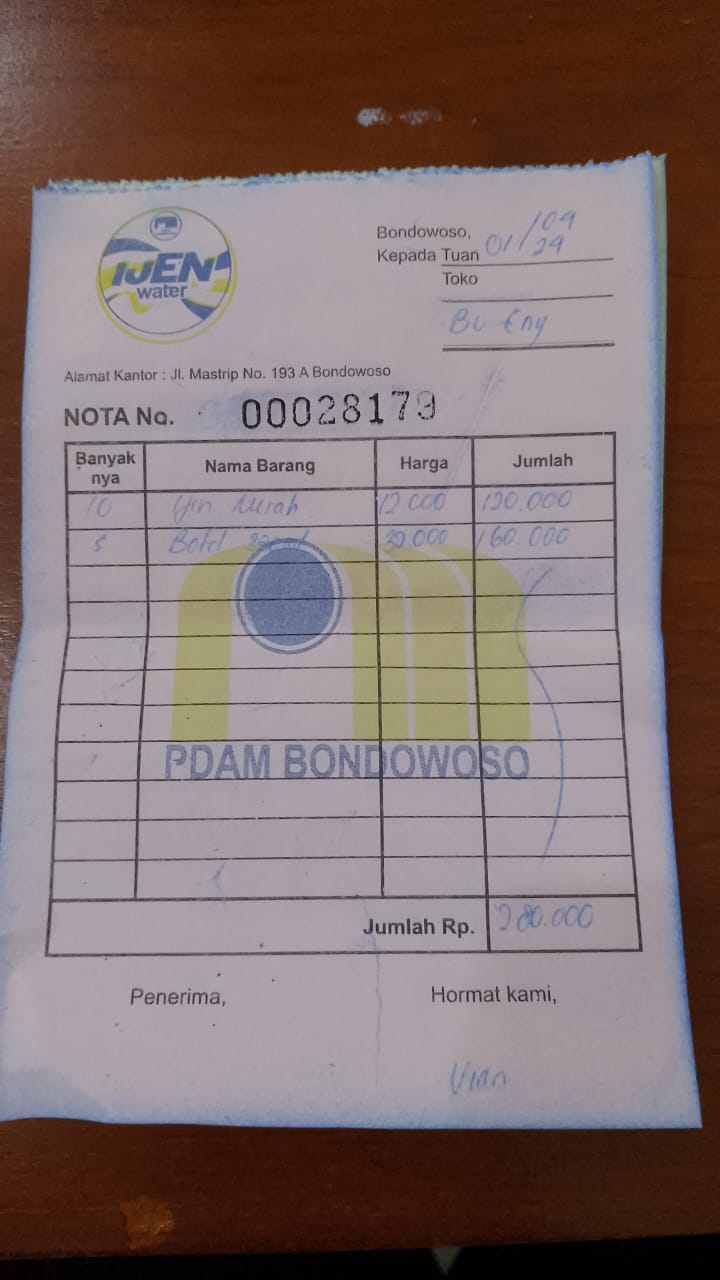 IJEN
water
Bondowoso, 01/04/24
Kepada Tuan
Toko
Bu Eny
Alamat Kantor : Jl. Mastrip No. 193 A Bondowoso
NOTA No. 00028179
Banyak nya Nama Barang Harga Jumlah
10 12 000 120.000
5 Botol 32.000 160.000
PDAM BONDOWOSO
Jumlah Rp. 280.000
Penerima, Hormat kami,